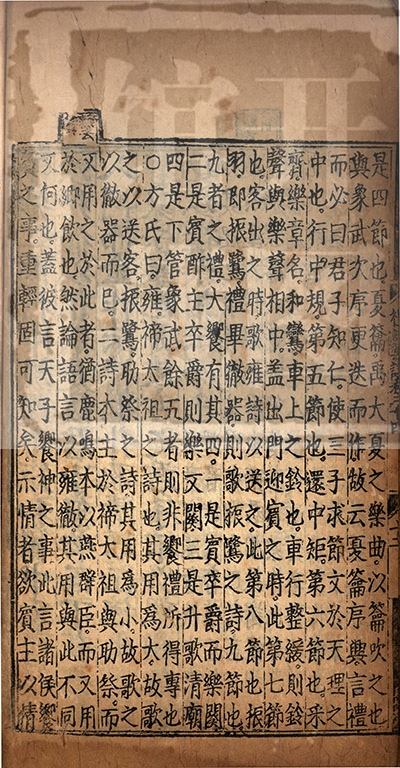 是四節也夏籥禹大夏之樂曲以籥吹之也
與象武次序更迭而作故云夏籥序興言禮
而必曰君子知仁使三子求節文於天理之
中也行中規第五節也還中矩第六節也采
齊樂章名和鸞車上之鈴也車行整緩則鈴
聲與樂聲相中蓋出門迎賓之時此第七節
也客出之時歌雍詩以送之此第八節也振
羽即振鷺禮畢徹器則歌振鷺之詩九節也
九者之禮大饗有其四一是賓卒爵而樂闋
二是賓酢主卒爵則樂又闋三是升歌清廟
四是下管象武餘五者則非饗禮所得專也
○方氏曰雍禘太祖之詩也其用爲大故歌
之以送客振鷺助祭之詩其用爲小故歌之
以徹器而已二詩本主於禘太祖與助祭而
又用之於此者猶鹿鳴本以燕群臣而又用
於鄉飲也然論語言以雍徹其用與此不同
又何也蓋彼言天子饗神之事此言諸侯饗
賓之事重輕固可知矣示情者欲賓主以情